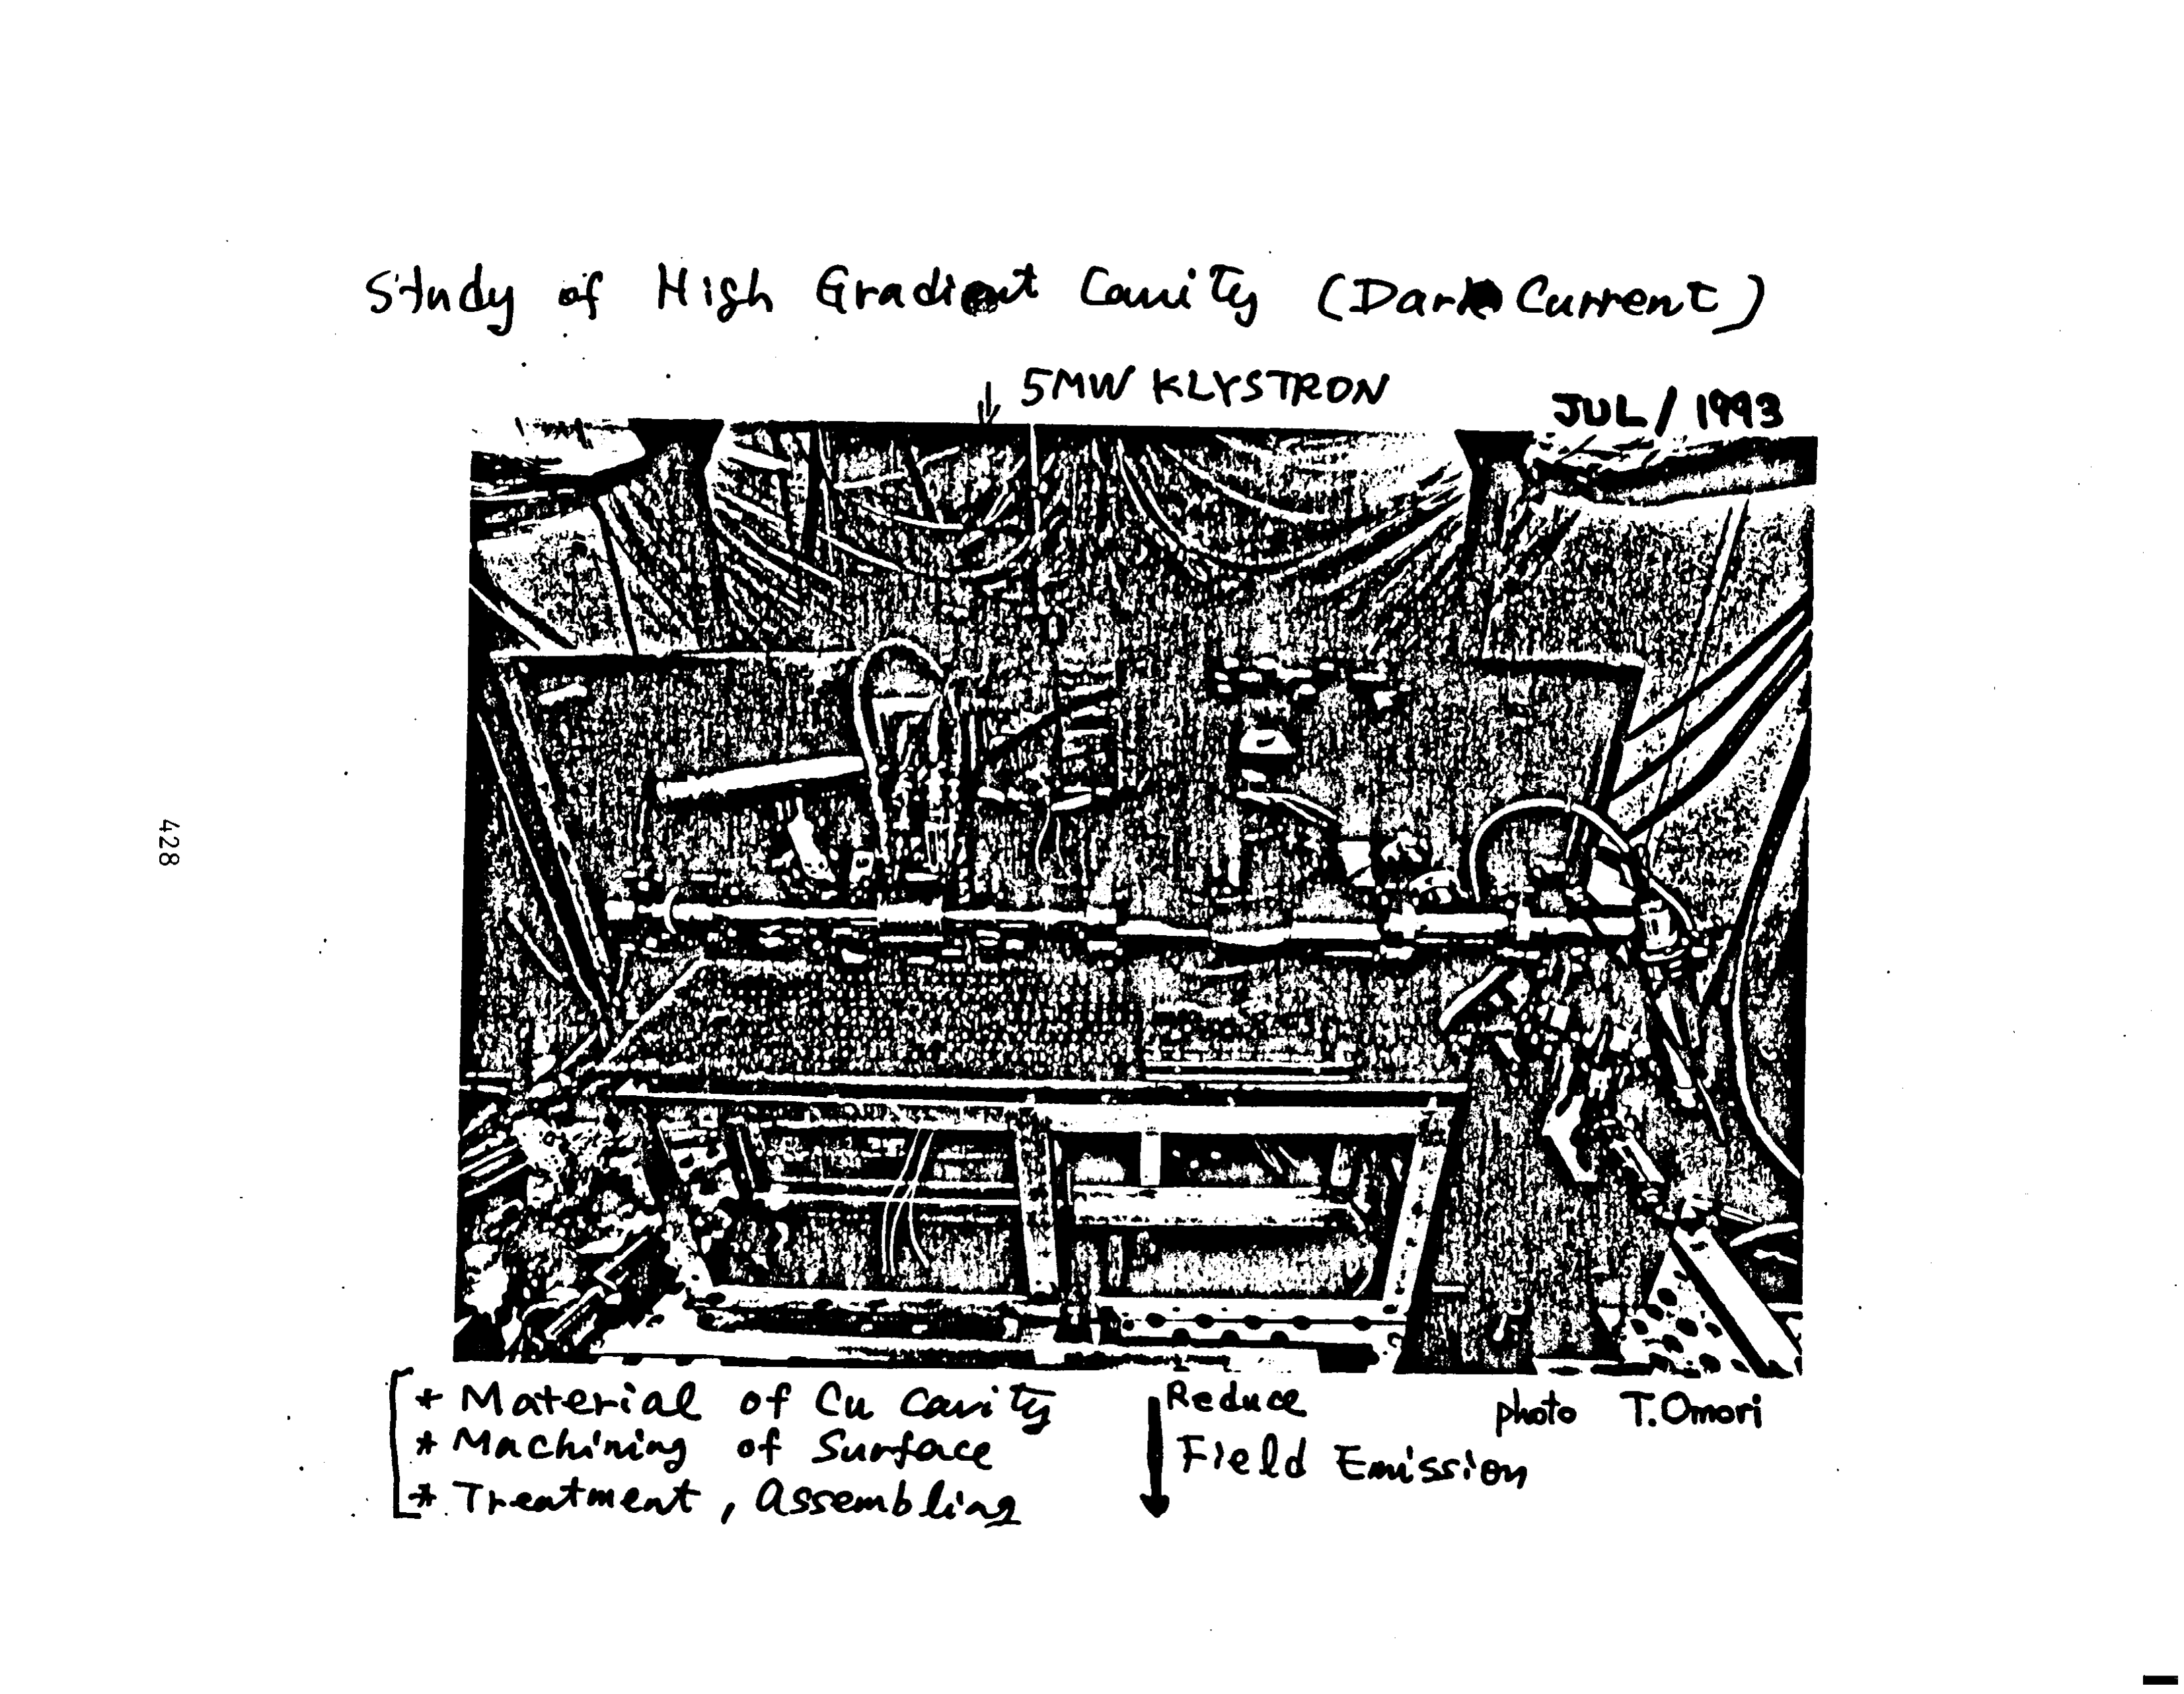 Study of High Gradient Cavity (Dark Current)
↓ 5MW KLYSTRON
JUL / 1993
428
* Material of Cu Cavity
* Machining of Surface
* Treatment, Assembling
Reduce
Field Emission
photo T.Omori